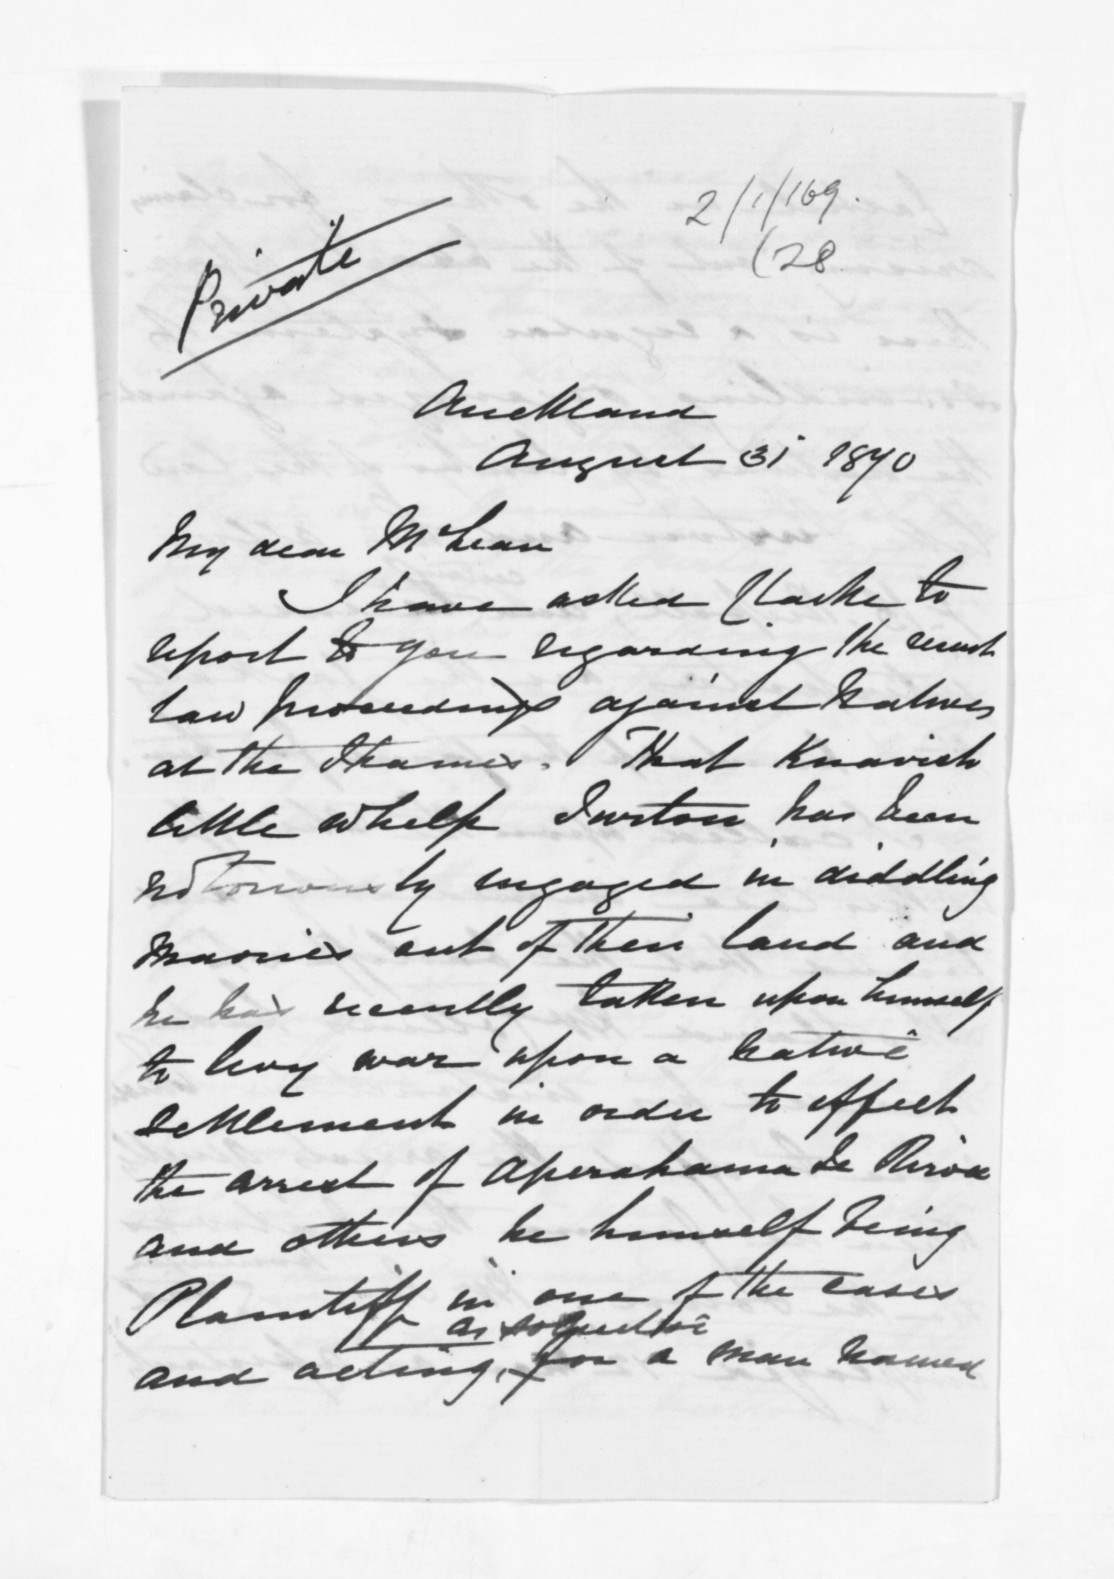 2/1/169.
(28.
Private
Auckland
August 31 1870
My dear McLean
I have asked Clarke to
report to you regarding the recent
law proceedings against Natives
at the Thames. That Knavish
little whelp Turton has been
notoriously engaged in diddling
Maories out of their land and
he has recently taken upon himself
to levy war upon a Native
Settlement in order to effect
the arrest of Aperahama Te Reiroa
and others he himself being
Plaintiff in one of the cases
as solicitor
and acting, for a man named